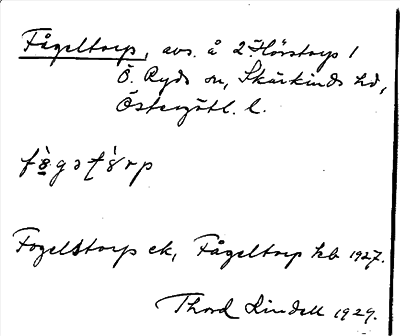 Fågeltorp, avs. å 2 Hörstorp 1
Ö. Ryds sn, Skärkinds hd,
Östergötl. l.
Fogelstorp ek, Fågeltorp kb 1927.
Thord Lindell 1929.